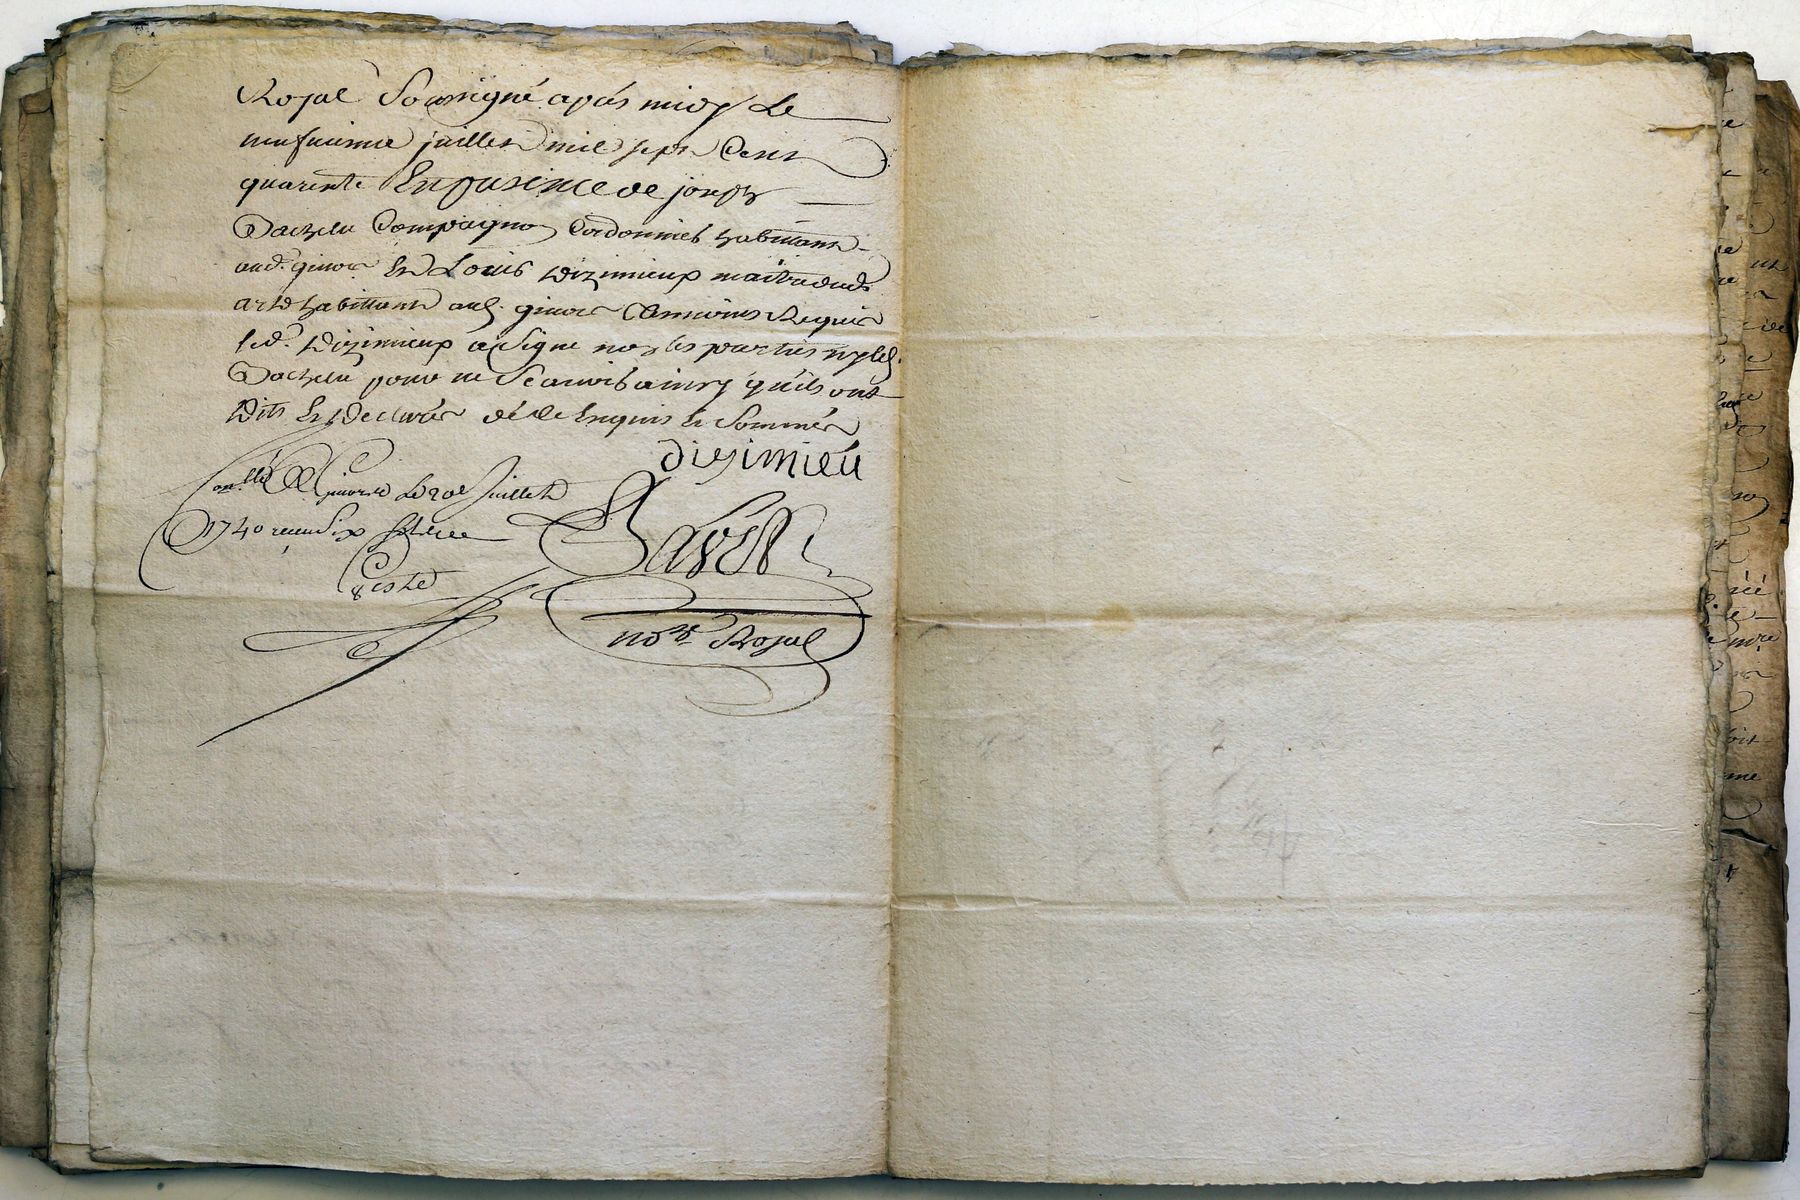 Royal Soussigné apres midy Le
neufvieme juillet mil sept Cent
quarente En presence de joseph
Dachere Compagnon Cordonnier habittant
aud. givors Et Louis Dizimieux maitre
habittant aud. givors Temoins Requis
led. Dizimieux a Signé non les parties ny led.
Dachere pour ne Scavoir ainsy qu'ils ont
Dits Et Declarés de ce Enquis Et Sommés
dizimieu
Conllé A Givors Le 20e Juillet
1740 receu Six
Coste
no.re Royal